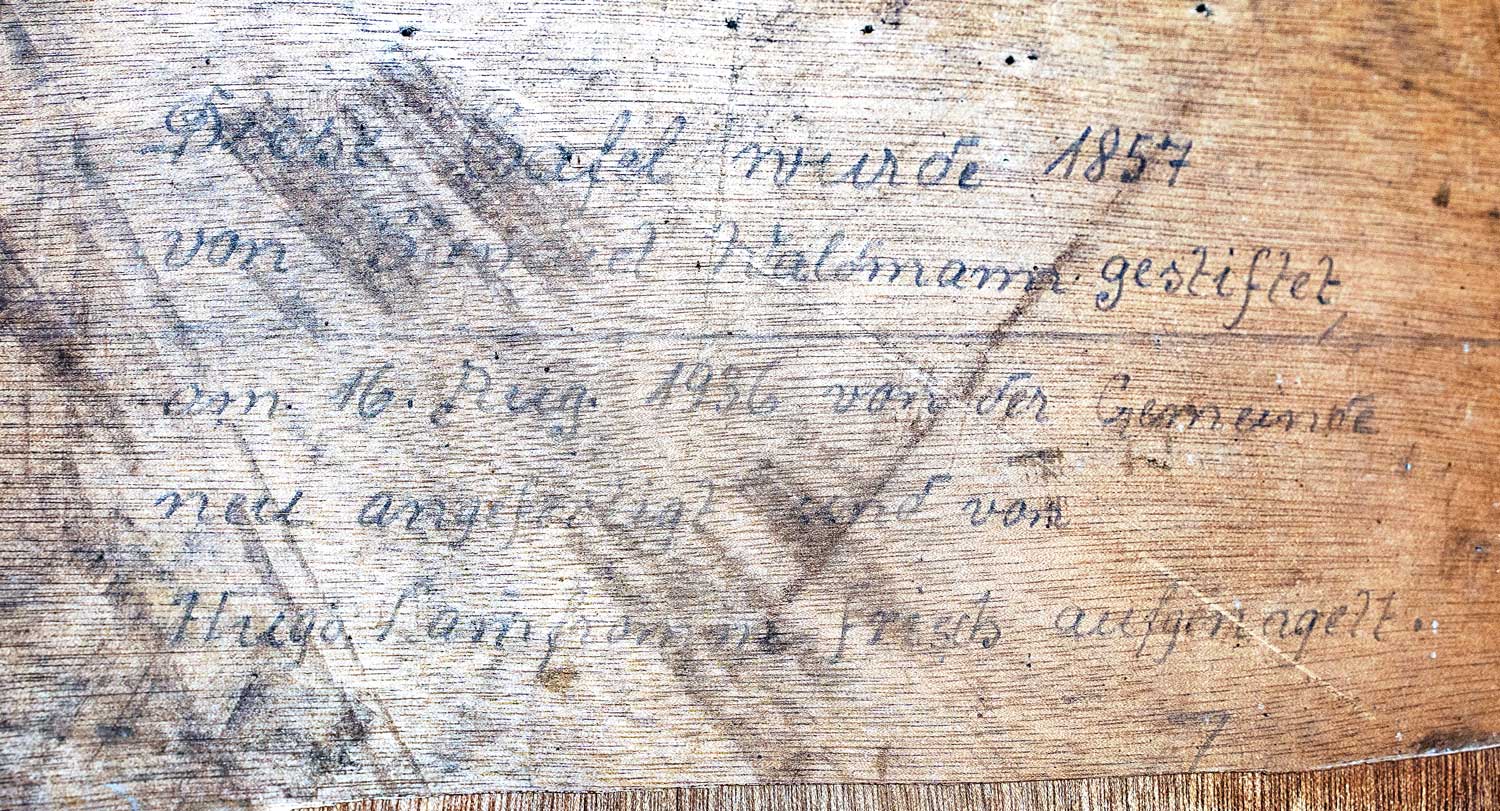 Diese Tafel wurde 1857
von Waldmann gestiftet,
am 16. Aug. 1936 von der Gemeinde
neu angefertigt und von
Hugo frisch aufgenagelt.
7